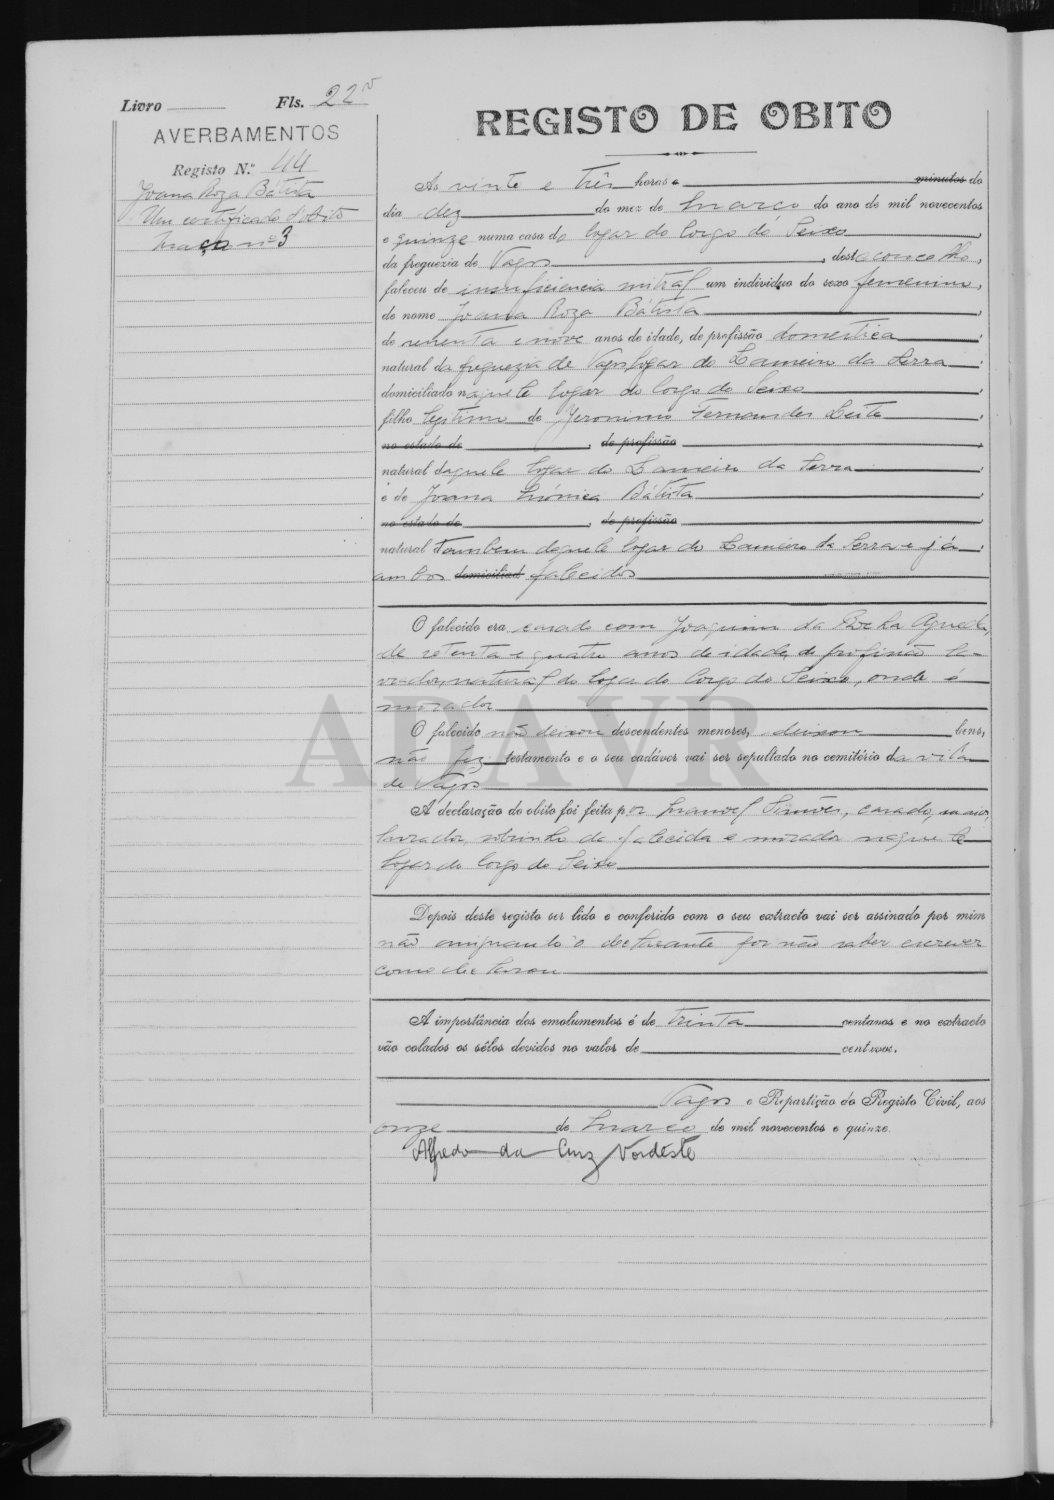 Livro Fls. 22v
AVERBAMENTOS
Registo N.º 44
Joana Roza Bátista
Um certificado d'obito
Março nº 3
REGISTO DE OBITO
As vinte e três horas e minutos do
dia dez do mez de Março do ano de mil novecentos
e quinze numa casa do logar do Corgo do Seixo,
da freguezia de Vagos, deste concelho,
faleceu de insuficiencia mitral um individuo do sexo femenino,
de nome Joana Roza Bátista
de setenta e nove anos de idade, de profissão domestica
natural da freguezia de Vagos logar do Lameiro da Serra
domiciliado naquele logar do Corgo do Seixo
filho legitimo de Jeronimo Fernandes Leite
no estado de , de profissão
natural daquele logar do Lameiro da Serra
e de Joana Mónica Bátista
no estado de , de profissão
natural tambem daquele logar do Lameiro da Serra e já
ambos domiciliad falecidos
O falecido era casado com Joaquim da Rocha
de setenta e quatro anos de idade, de profissão la-
vrador, natural do logar do Corgo do Seixo, onde é
morador
O falecido não deixou descendentes menores, deixou bens,
não fez testamento e o seu cadáver vai ser sepultado no cemitério da vila
de Vagos
A declaração do obito foi feita por Manoel Simões, casado, maior,
lavrador, sobrinho da falecida e morador naquele
logar do Corgo do Seixo
Depois deste registo ser lido e conferido com o seu extracto vai ser assinado por mim
não assignando o declarante por não saber escrever
como declarou
A importância dos emolumentos é de trinta centavos e no extracto
vão colados os sêlos devidos no valor de centavos.
Vagos e Repartição do Registo Civil, aos
onze de Março de mil novecentos e quinze.
Alfredo da Cruz Nordeste
ADAVR